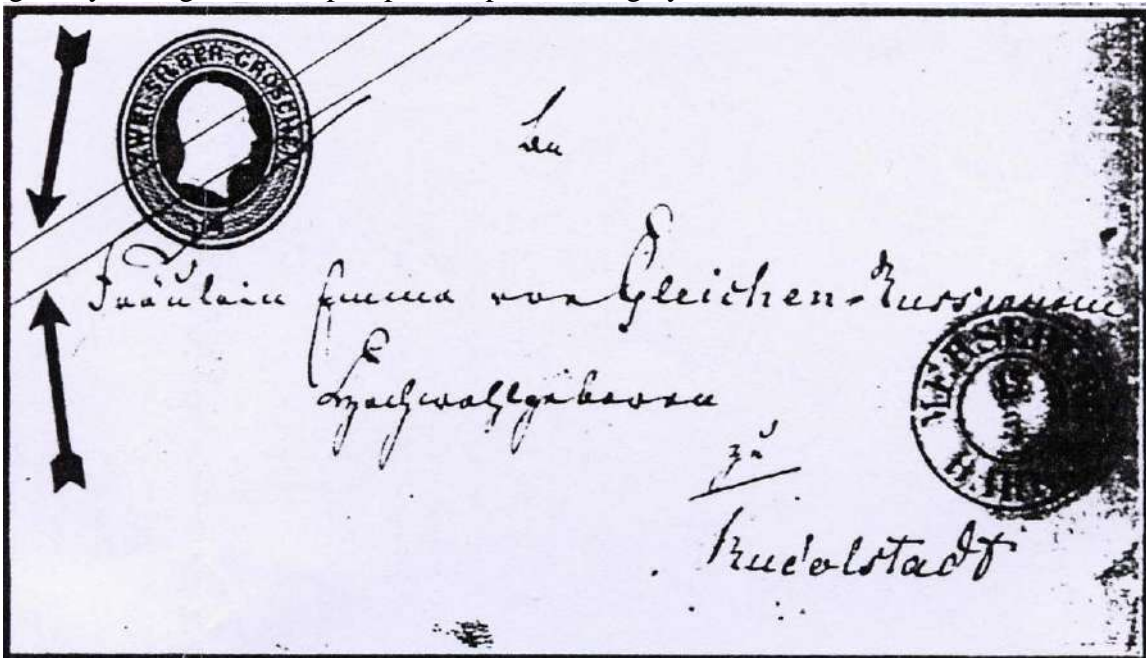 ZWEI SILBER GROSCHEN
An
Fräulein Emma von Gleichen-Russwurm
Hochwohlgeboren
zu
Rudolstadt